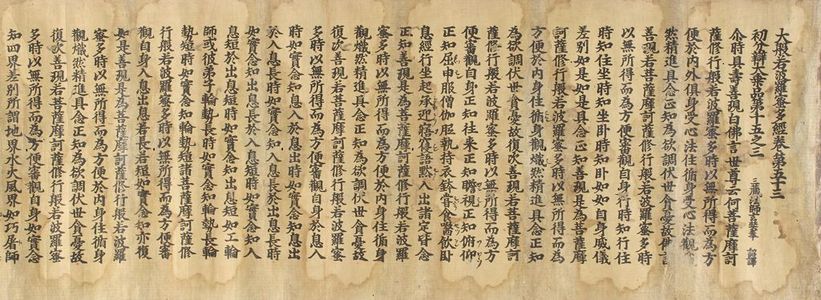 大般若波羅蜜多經卷第五十三
初分辯大乘品第十五之三 三藏法師玄奘奉 詔譯
尒時具壽善現白佛言世尊云何菩薩摩訶
薩修行般若波羅蜜多時以無所得而為方
便於內外俱身受心法住循身受心法觀熾
然精進具念正知為欲調伏世貪憂故佛言
善現若菩薩摩訶薩修行般若波羅蜜多時
以無所得而為方便審觀自身行時知行住
時知住坐時知坐卧時知卧如如自身威儀
差別如是如是具念正知善現是為菩薩摩
訶薩修行般若波羅蜜多時以無所得而為
方便於內身住循身觀熾然精進具念正知
為欲調伏世貪憂故復次善現若菩薩摩訶
薩修行般若波羅蜜多時以無所得而為方
便審觀自身正知往來正知瞻視正知俯仰
正知屈申服僧伽胝執持衣鉢嘗食歠飲卧
息經行坐起承迎寤寐語默入出諸定皆念
正知善現是為菩薩摩訶薩修行般若波羅
蜜多時以無所得而為方便於內身住循身
觀熾然精進具念正知為欲調伏世貪憂故
復次善現若菩薩摩訶薩修行般若波羅蜜
多時以無所得而為方便審觀自身於息入
時如實念知息入於息出時如實念知息出
於入息長時如實念知入息長於出息長時
如實念知出息長於入息短時如實念知入
息短於出息短時如實念知出息短如工輪
師或彼弟子輪勢長時如實念知輪勢長輪
勢短時如實念知輪勢短諸菩薩摩訶薩修
行般若波羅蜜多時以無所得而為方便審
觀自身入息出息若長若短如實念知亦復
如是善現是為菩薩摩訶薩修行般若波羅
蜜多時以無所得而為方便於內身住循身
觀熾然精進具念正知為欲調伏世貪憂故
復次善現若菩薩摩訶薩修行般若波羅蜜
多時以無所得而為方便審觀自身如實念
知四界差別所謂地界水火風界如巧屠師